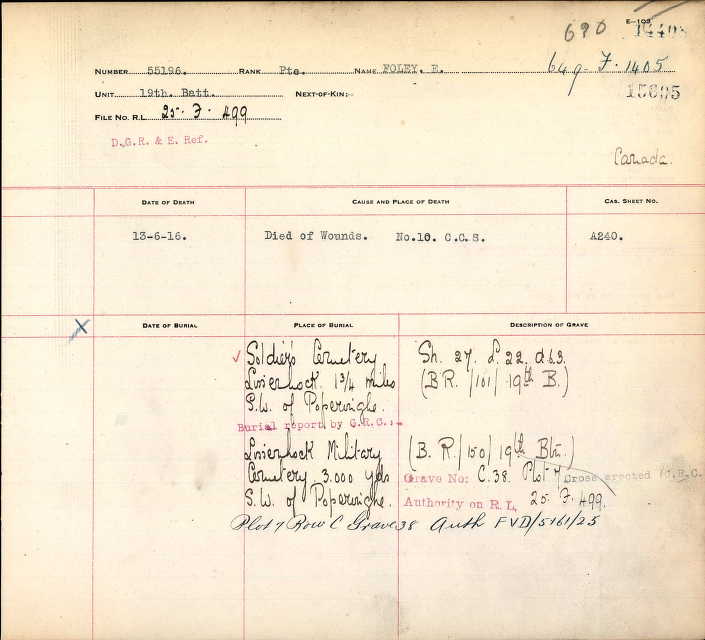 690 E-103
NUMBER 55196. RANK Pte. NAME FOLEY, E. 649-F-1405
UNIT 19th. Batt. NEXT-OF-KIN:- 15695
FILE NO. R.L. 25-F-499
D.G.R. & E. Ref.
Canada.
DATE OF DEATH CAUSE AND PLACE OF DEATH CAS. SHEET NO.
13-6-16. Died of Wounds. No.10. C.C.S. A240.
X DATE OF BURIAL PLACE OF BURIAL DESCRIPTION OF GRAVE
✓ Soldier's Cemetery Sh. 27. L 22. d.6.3.
Lissenhock. 1 3/4 miles (B.R. /101/ 19th B.)
S.W. of Poperinghe.
Burial report by G.R.C.:-
Lissenhock Military (B. R./150/19th Btn.)
Cemetery 3.000 yds Grave No: C.38. Plot 7 Cross erected (G.R.C.
S.W. of Poperinghe. Authority on R.L. 25. F. 499.
Plot 7 Row C Grave 38 Auth FVD/5161/25